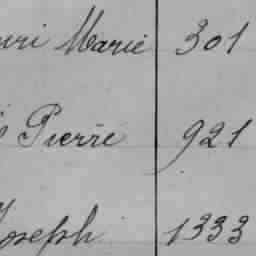 Marie 301
Pierre 921
Joseph 1333